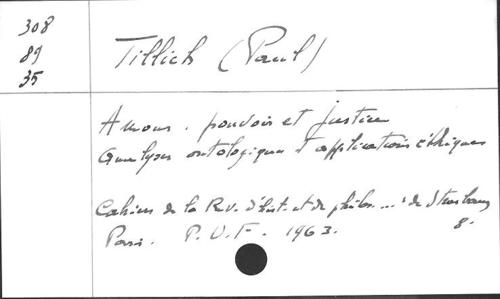 308
89
35
Tillich (Paul)
Amour, pouvoir et justice
Analyses ontologiques et applications éthiques
Cahiers de la Rev. d'hist. et de philos. ... de Strasbourg
Paris. P.U.F. 1963. 8.